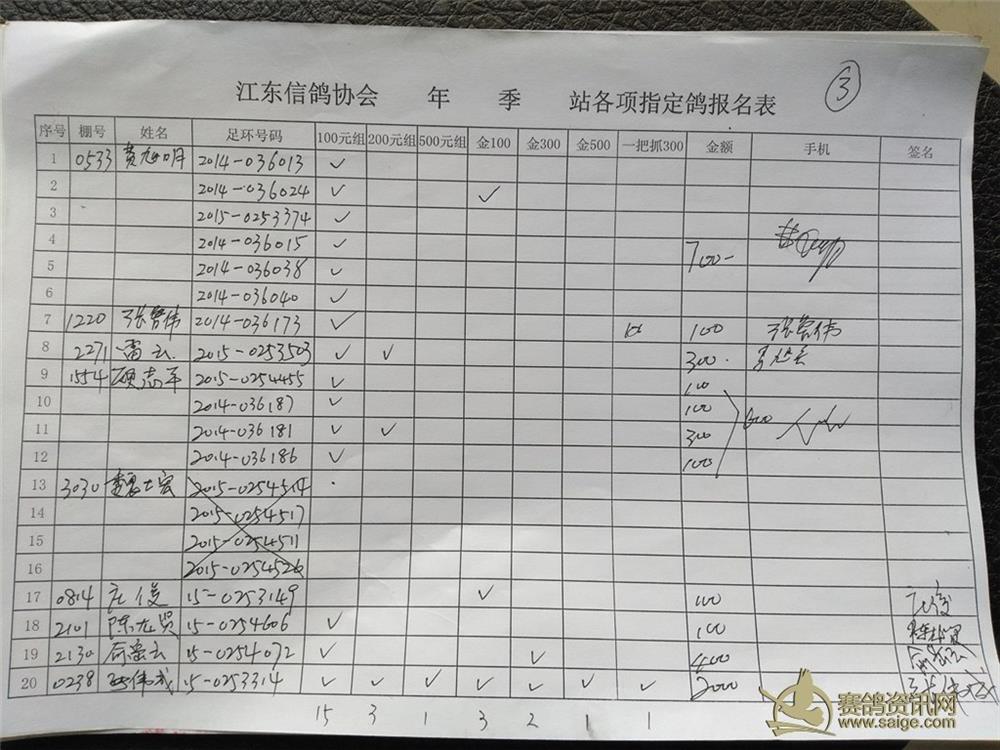 ③
江东信鸽协会 年 季 站各项指定鸽报名表
序号 棚号 姓名 足环号码 100元组 200元组 500元组 金100 金300 金500 一把抓300 金额 手机 签名
1 0533 2014-036013 ✓
2 2014-036024 ✓ ✓
3 2015-0253374 ✓
4 2014-036015 ✓
5 2014-036038 ✓ 700-
6 2014-036040 ✓
7 1220 2014-036173 ✓ 100
8 2271 雷云 2015-0253503 ✓ ✓ 300
9 1554 顾志平 2015-0254455 ✓ 100
10 2014-036187 ✓ 100
11 2014-036181 ✓ ✓ 300 600
12 2014-036186 ✓ 100
13 3030 2015-0254514
14 2015-0254517
15 2015-0254511
16 2015-0254526
17 0814 15-0253149 ✓ 100
18 2101 陈龙贤 15-0254606 ✓ 100
19 2130 15-0254072 ✓ ✓ 400
20 0238 15-0253314 ✓ ✓ ✓ ✓ ✓ ✓ ✓ 2000
15 3 1 3 2 1 1
赛鸽资讯网
www.saige.com